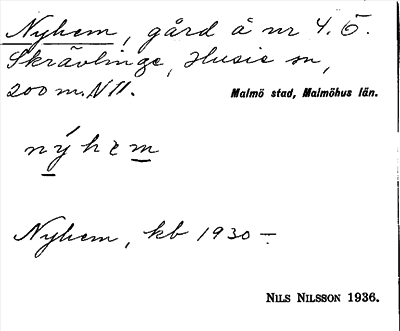 Nyhem, gård å nr 4. 5.
Skrävlinge, Husie sn,
200 m. N 11.
Malmö stad, Malmöhus län.
nýhem
Nyhem, kb 1930 –
NILS NILSSON 1936.